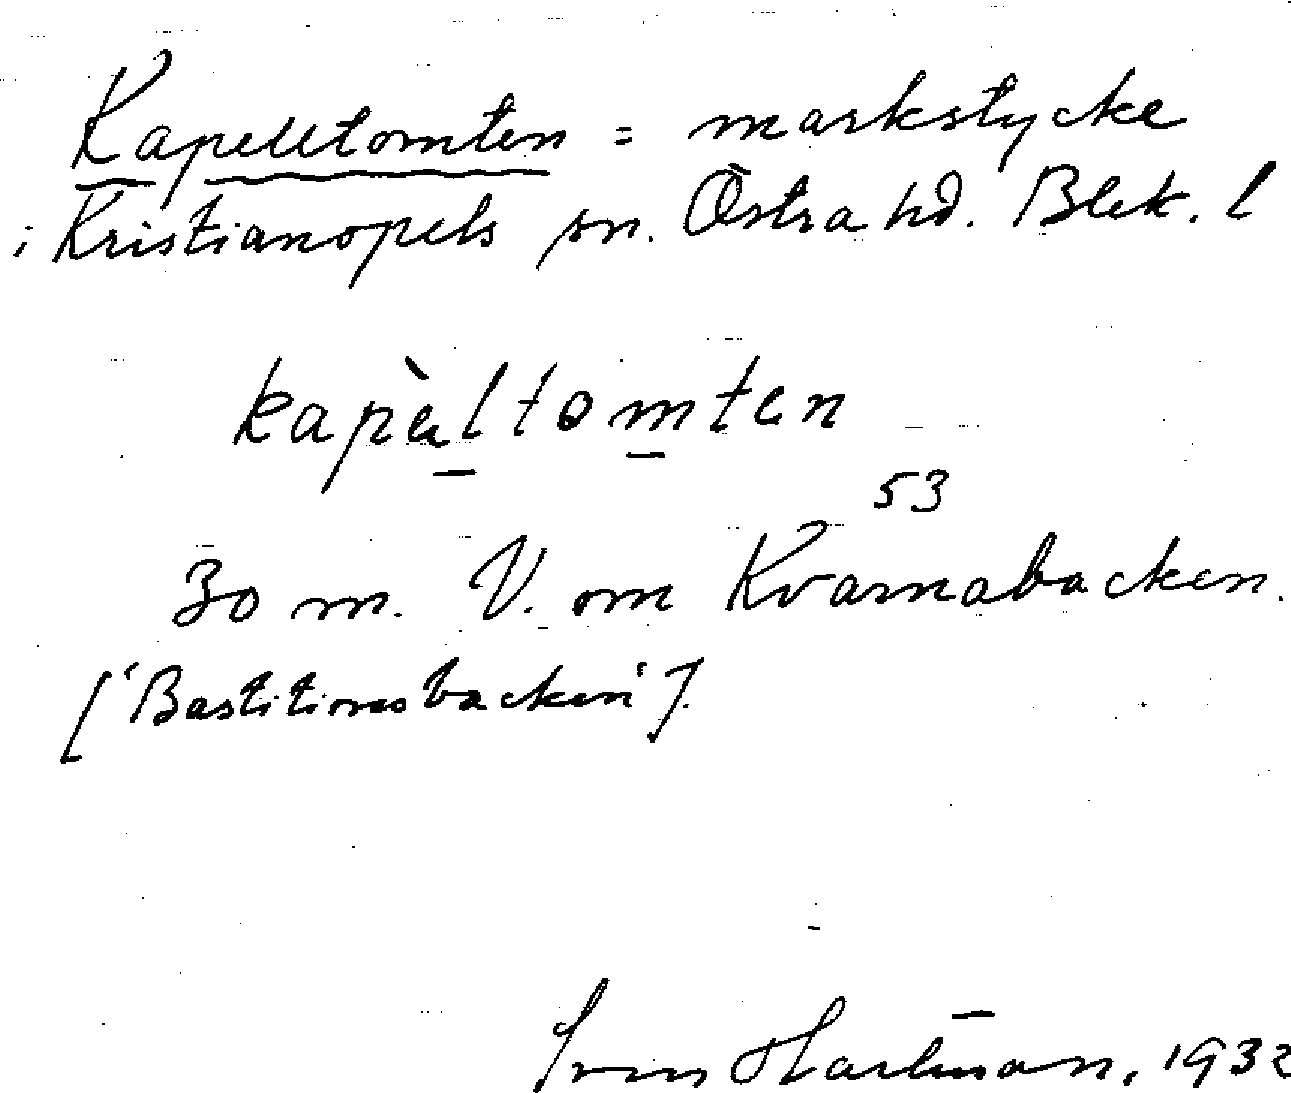 Kapelltomten = markstycke
i Kristianopels sn. Östra hd. Blek. l
kapèltomten
53
30 m. V. om Kvarnabacken.
['Bastitionsbacken'].
Hartman, 1932